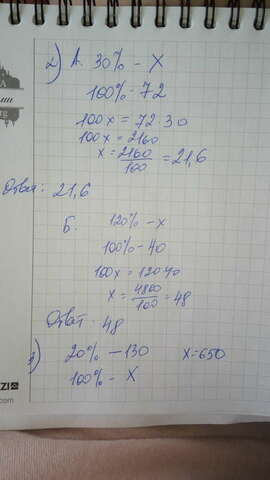 2) А. 30% - x
100% - 72
100x = 72·30
100x = 2160
x = 2160/100 = 21,6
Ответ: 21,6
Б. 120% - x
100% - 40
100x = 120·40
x = 4800/100 = 48
Ответ - 48
3) 20% - 130 x=650
100% - x